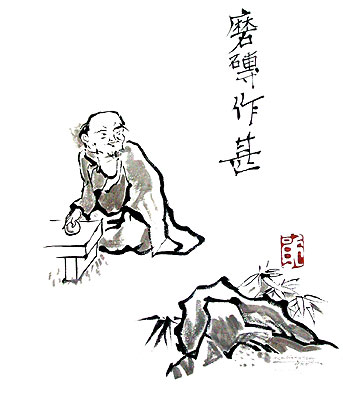 磨磚作甚